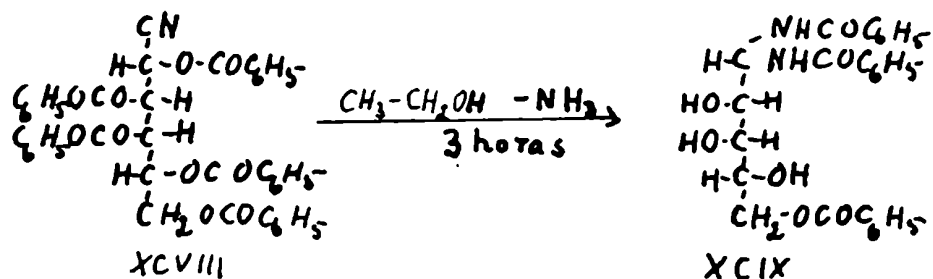 CN
H-C-O-COC6H5
C6H5OCO-C-H
C6H5OCO-C-H
H-C-OCOC6H5
CH2OCOC6H5
XCVIII
CH3-CH2OH -NH3
3 horas
NHCOC6H5
H-C NHCOC6H5
HO-C-H
HO-C-H
H-C-OH
CH2-OCOC6H5
XCIX